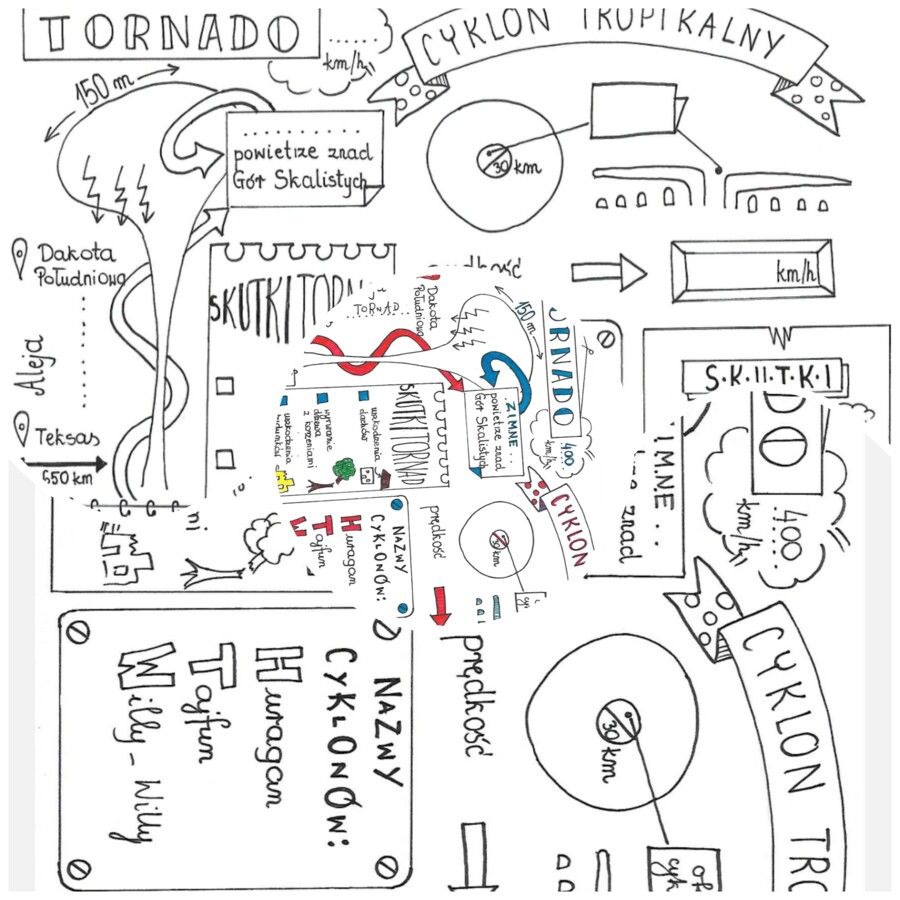 TORNADO
......
km/h
CYKLON TROPIKALNY
150 m
..........
powietrze znad
Gór Skalistych
30 km
Dakota
Południowa
Aleja
Teksas
650 km
SKUTKI TORNAD
km/h
S·K·U·T·K·I
Dakota
Południowa
TORNAD
150 m
ZIMNE
powietrze znad
Gór Skalistych
400
km/h
SKUTKI TORNAD
uszkodzenia
dachów
wyrwanie
drzewa
z korzeniami
uszkodzenia
budynków
CYKLON
30 km
prędkość
NAZWY
CYKLONÓW:
Huragan
Tajfun
W
ZIMNE..
znad
DO
400
km/h
NAZWY
CYKLONÓW:
Huragan
Tajfun
Willy-Willy
prędkość
30 km
CYKLON TRO